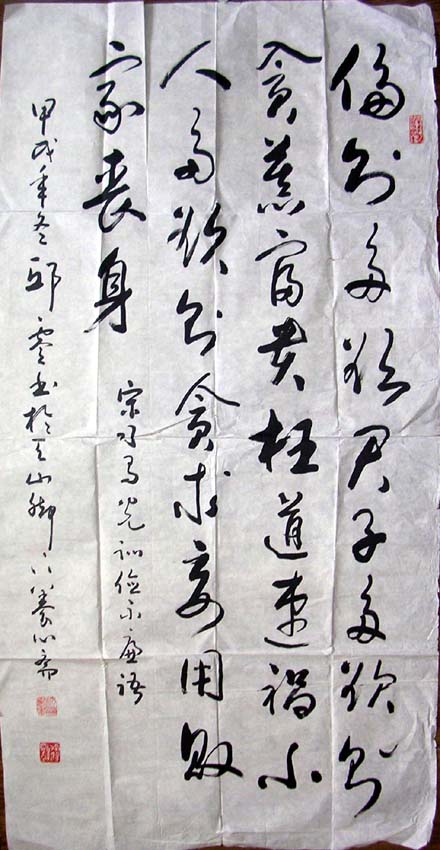 侈则多欲君子多欲则
贪慕富贵枉道速祸小
人多欲则贪求妄用败
家丧身
宋司马光训俭示廉语
甲戌年冬书於天山脚下养心斋